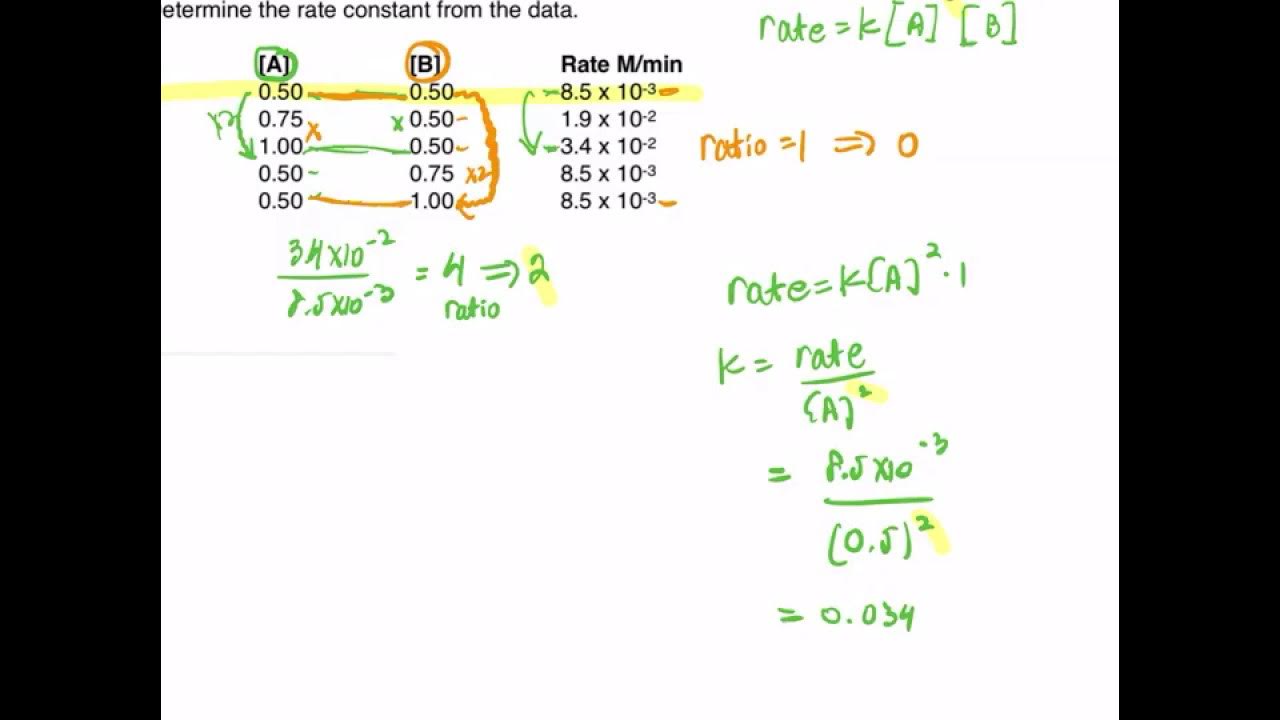 etermine the rate constant from the data.
rate = k[A] [B]
[A] [B] Rate M/min
0.50 0.50 8.5 x 10-3
0.75 0.50 1.9 x 10-2
1.00 0.50 3.4 x 10-2
0.50 0.75 8.5 x 10-3
0.50 1.00 8.5 x 10-3
x2
x x
x2
ratio = 1 ⇒ 0
3.4 x10-2
8.5 x10-3
= 4 ⇒ 2
ratio
rate = k[A]2 · 1
k = rate
[A]2
= 8.5 x10-3
(0.5)2
= 0.034